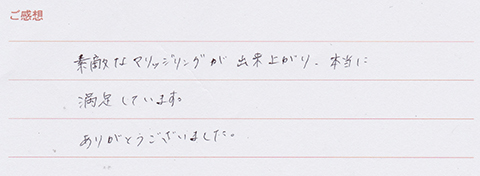 ご感想
素敵なマリッジリングが出来上がり、本当に
満足しています。
ありがとうございました。